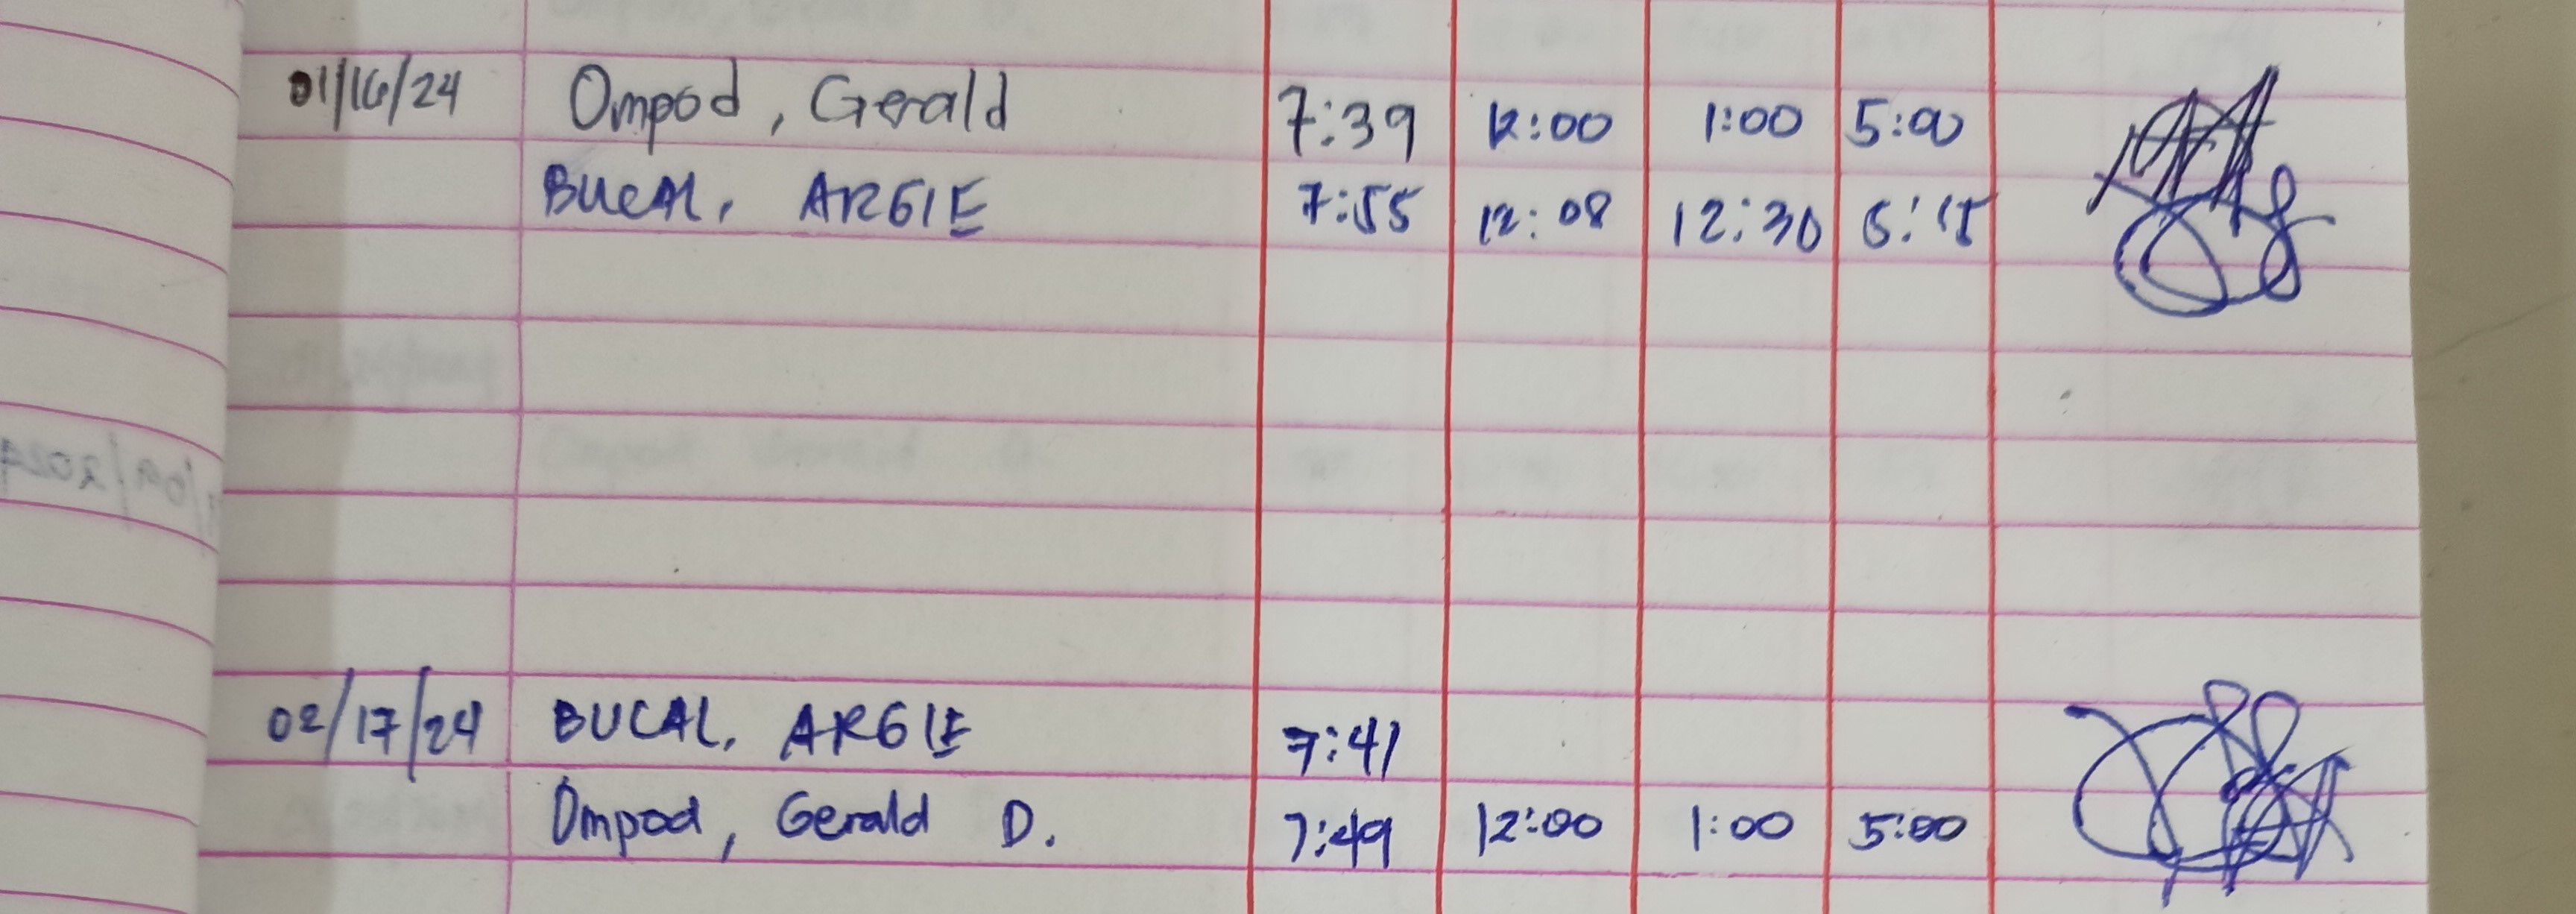 01/16/24 Ompod, Gerald 7:39 12:00 1:00 5:00
BUCAL, ARGIE 7:55 12:08 12:30 5:15
02/17/24 BUCAL, ARGIE 7:41
Ompod, Gerald D. 7:49 12:00 1:00 5:00